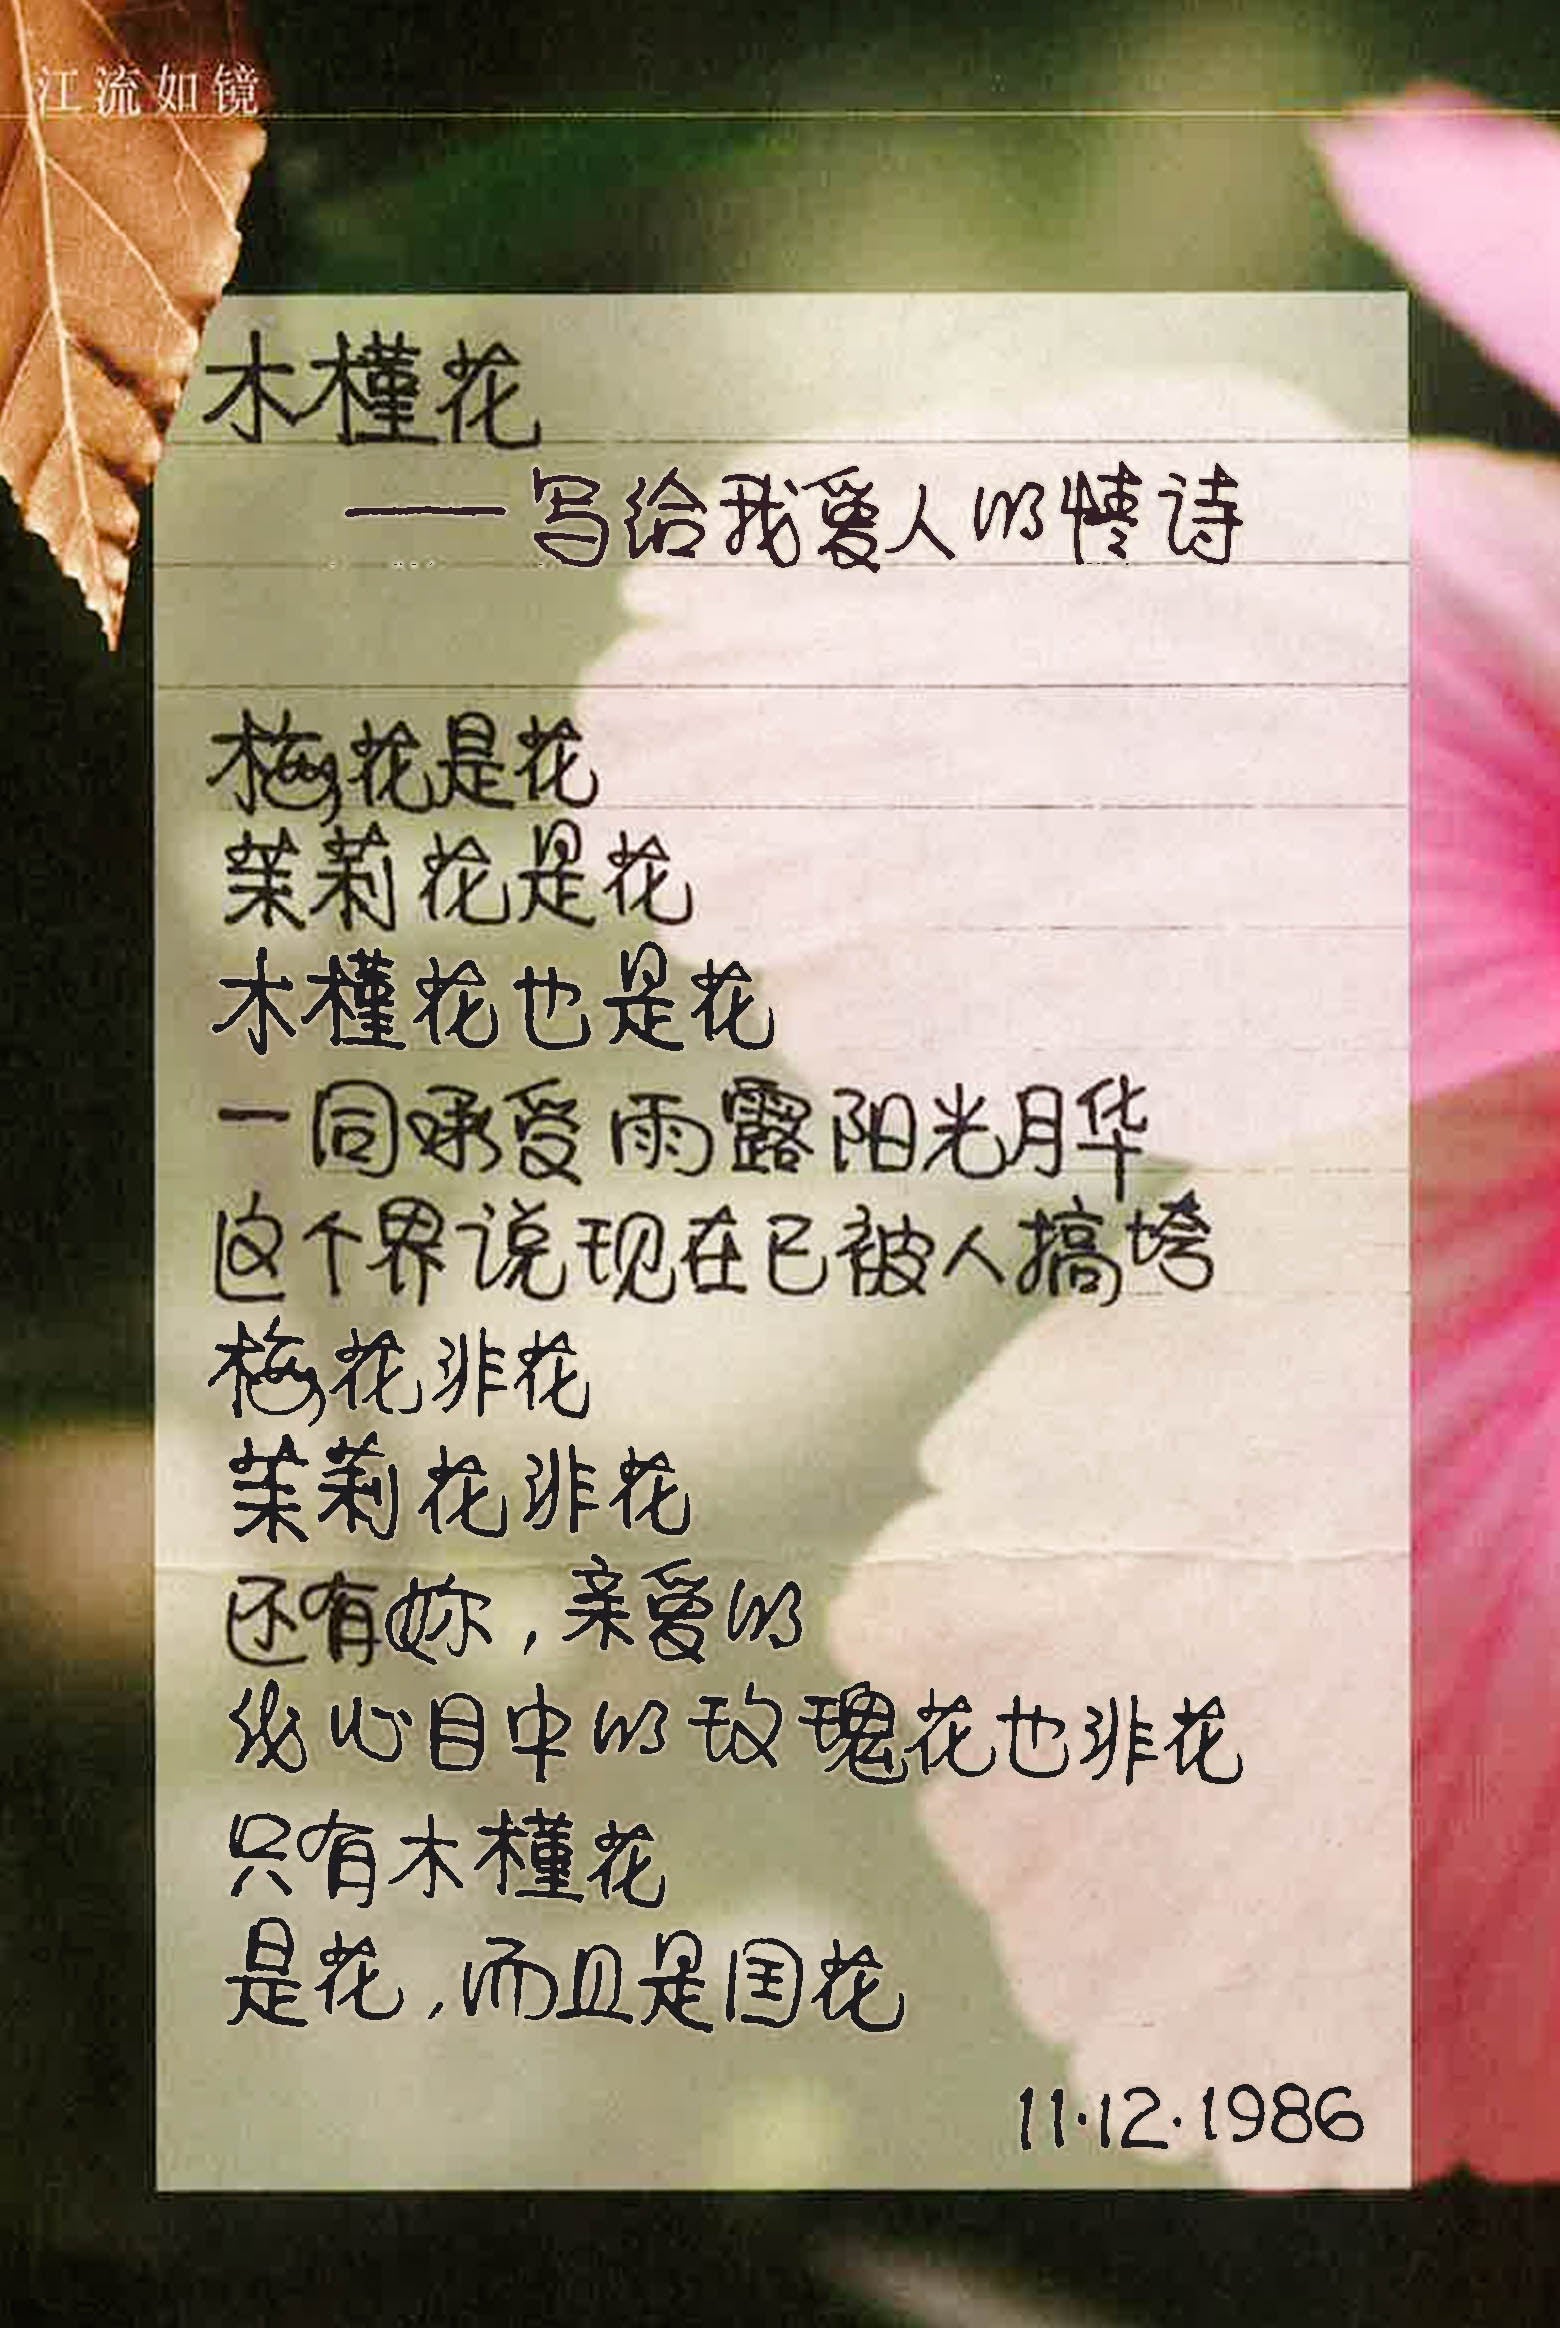 江流如镜
木槿花
——写给我爱人的情诗
梅花是花
茉莉花是花
木槿花也是花
一同承受雨露阳光月华
这个界说现在已被人搞垮
梅花非花
茉莉花非花
还有妳，亲爱的
我心目中的玫瑰花也非花
只有木槿花
是花，而且是国花
11·12·1986